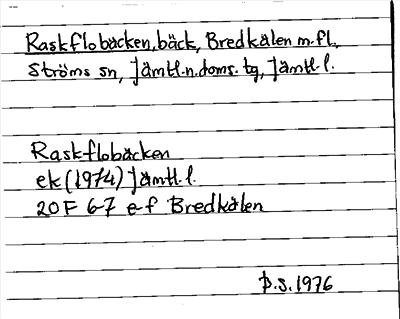 Raskflobäcken, bäck, Bredkälen m.fl.
Ströms sn, Jämtl.n.doms. tg, Jämtl.l.
Raskflobäcken
ek (1974) Jämtl.l.
20F 6-7 e-f Bredkälen
Þ.S. 1976